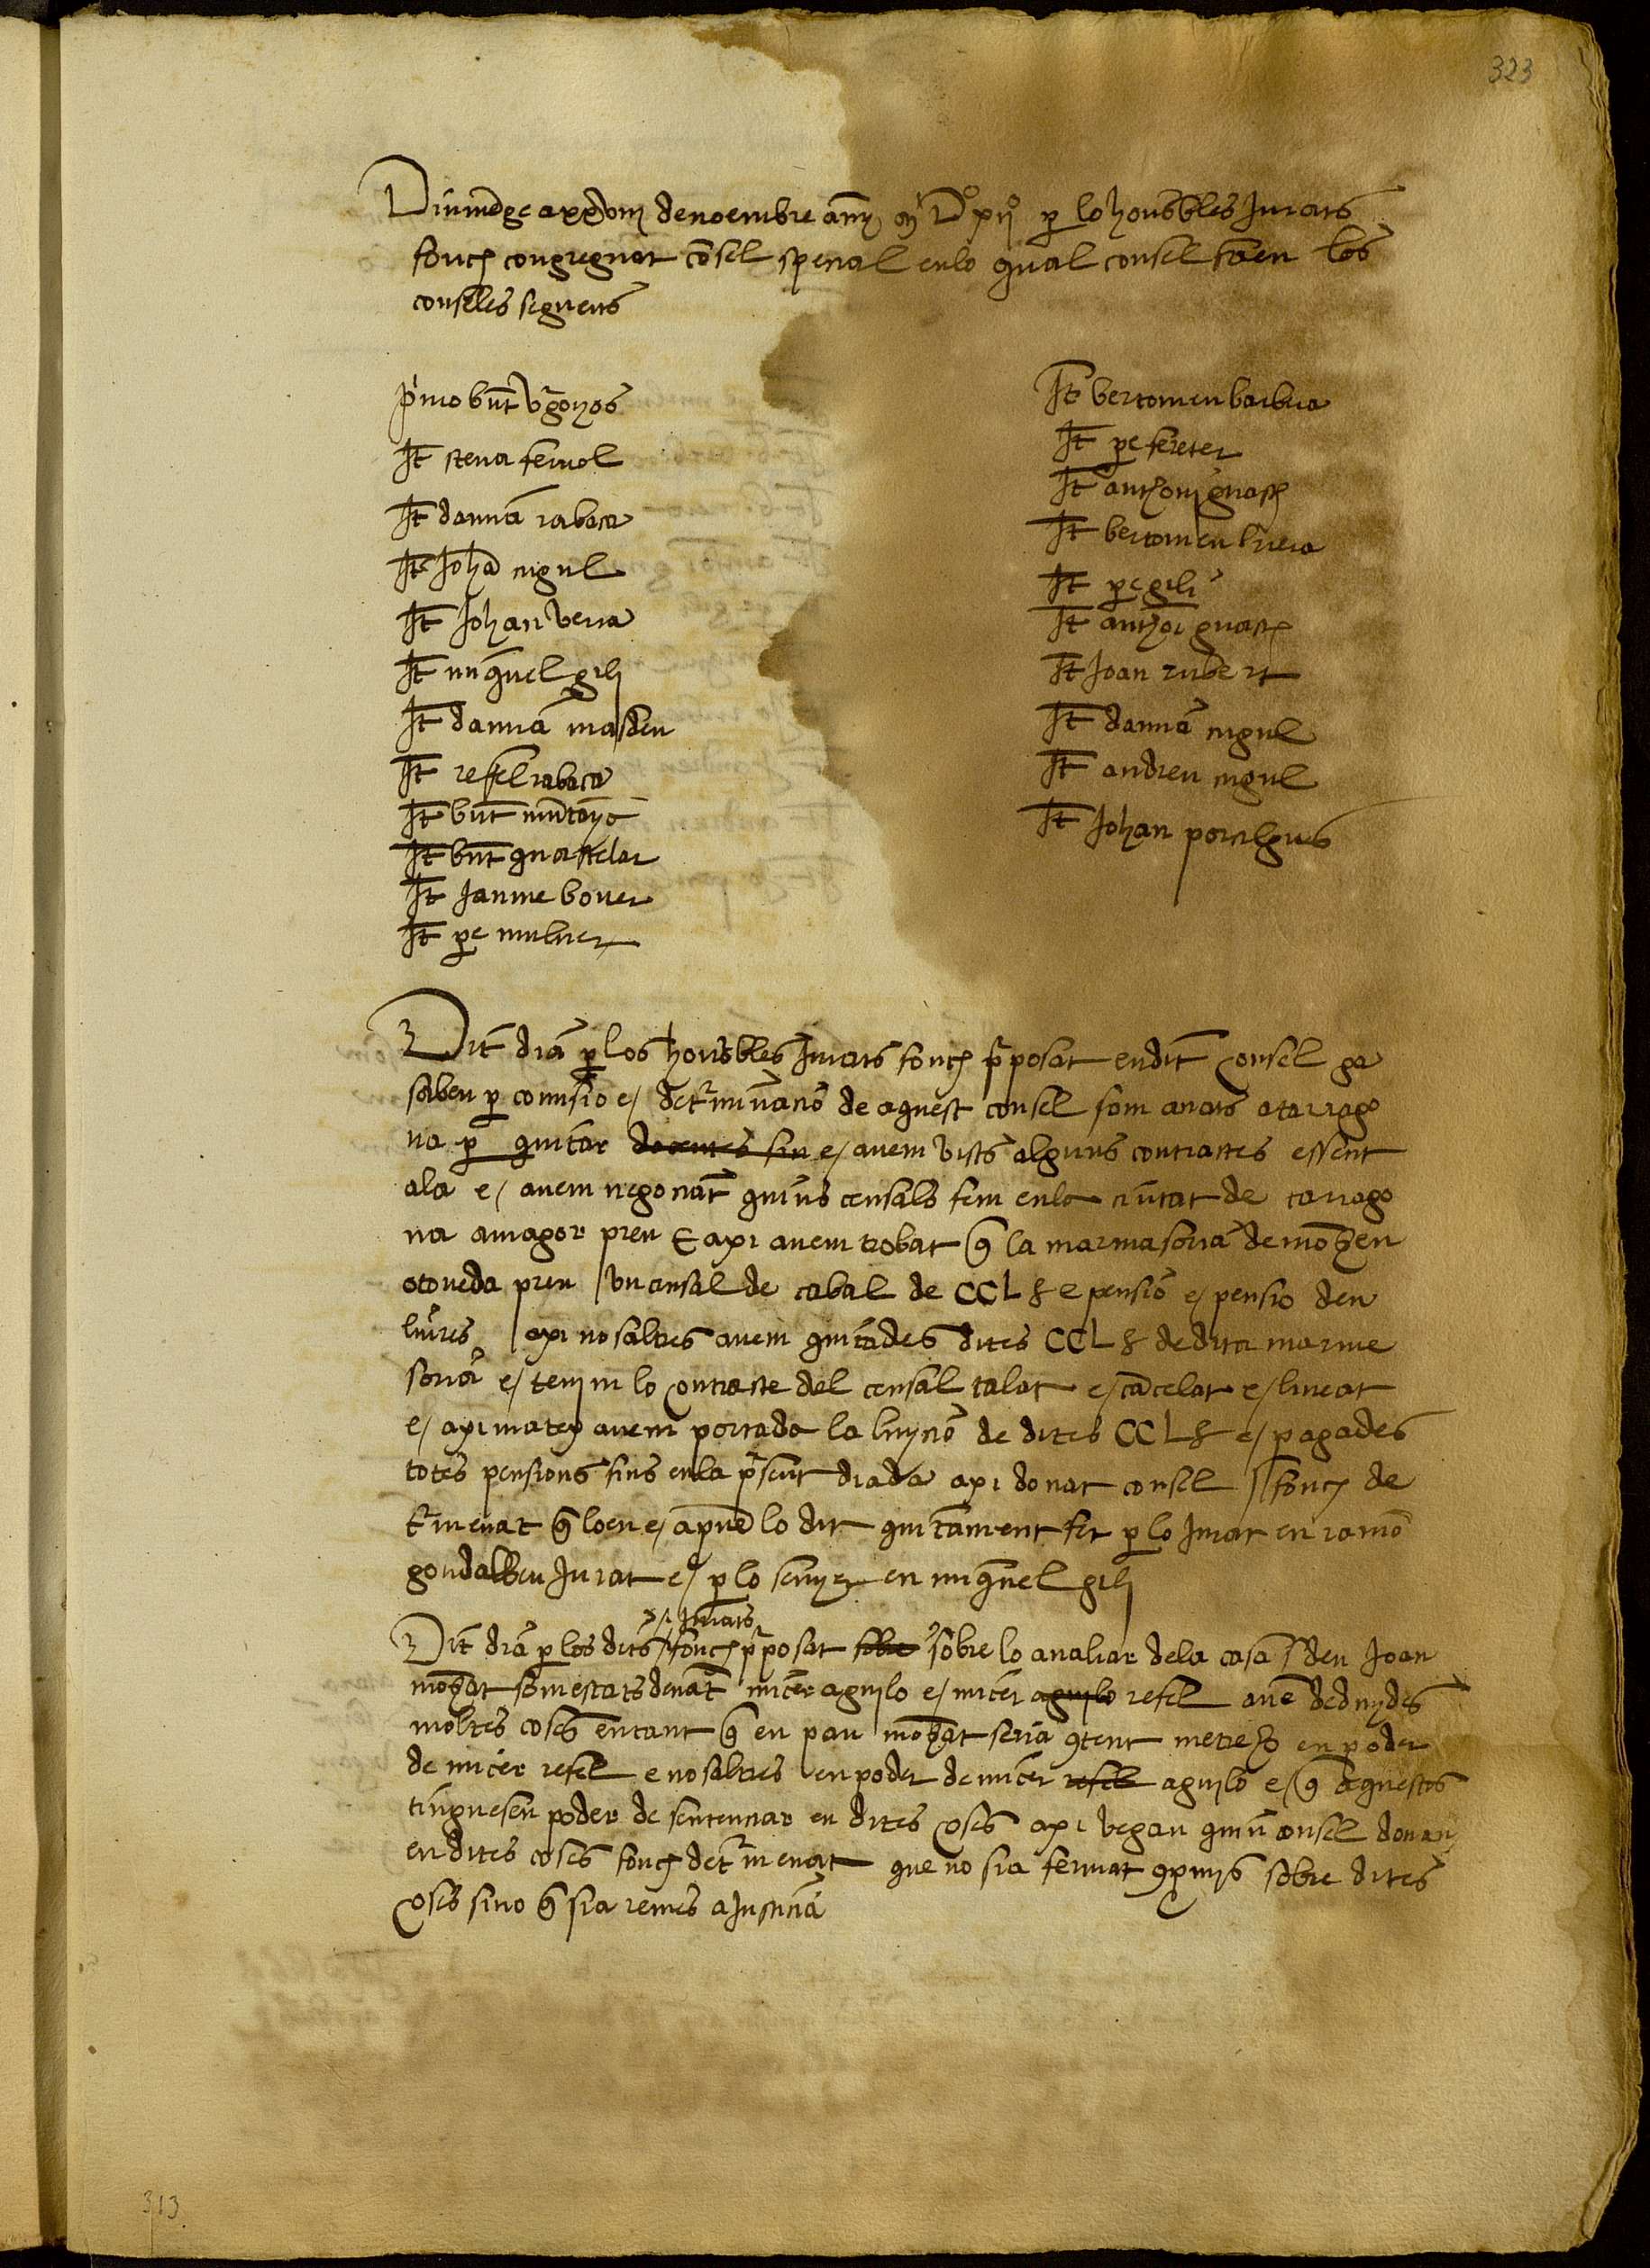 323
Diumēge a xx don de noembre any M D xii per lo honrables Jurats
fonch congreguat cōsel special en lo qual consel foren los
conseles seguens
p'mo bnt vrgonyos
It steva ferriol
It damiā rabaca
It Johā mgul
It Johan veria
It miquel gili
It damiā masdeu
It refel rabaca
It bnt muntanye
It bnt quartelar
It Jaume bover
It pe muluer
It bertomeu barbera
It pe fereter
It anthoni guasch
It bertomeu lriera
It pe gili
It anthoi guasch
It Joan rubert
It damiā mgul
It andreu mgul
It Johan porcelgues
Dit dia per los honrables Jurats fonch pposat en dit consel ga
saben per comisio e determinacio de aquest consel som anats a tarrago
na per quitar docentes sin e avem vists alguns contractes essent
ala e avem negociat quins censals fem en la ciutat de tarrago
na a magor preu E axi avem trobat q la marmasoria de mossen
otoneda pren un censal de cabal de CCL ll e pensio e pensio deu
liures axi nosaltres avem quitades dites CCL ll de dita marme
soria e tenim lo contracte del censal talat e cācelat e lineat
e axi matex avem portada la luycio de dites CCL ll e pagades
totes pensions fins en la psent diada axi donat consel fonch de
t'menat q loen e apve lo dit quitament fet per lo Jurat en ramō
gondalbeu Jurat e per lo senyer en miquel gili
Jurats
Dit dia per los dits fonch pposat sobre sobre lo analiar de la casa den Joan
mōzat som estats denāt micer aguilo e micer aguilo refel avē deduydes
moltes coses en tant q en pau mōzat seria qtent metreho en poder
de micer refel e nosaltres en poder de micer refel aguilo e q aquestos
tinguesen poder de sentenciar en dites coses axi vegan quin consel donan
en dites coses fonch det'menat que no sia fermat qpmis sobre dites
coses sino q sia remes a Justicia
313